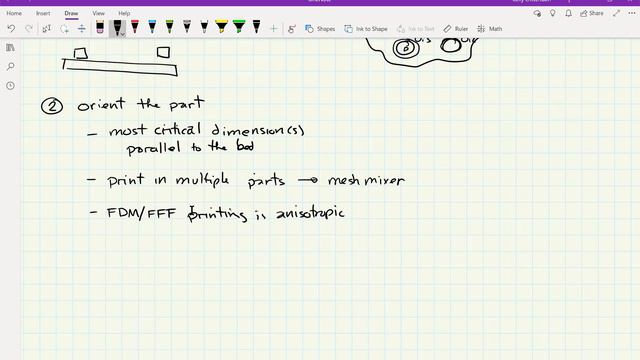 Home
Insert
Draw
View
Help
Shapes
Ink to Text
Ruler
Ink to Math
Share
② orient the part
- most critical dimension(s)
parallel to the bed
- print in multiple parts → meshmixer
- FDM/FFF printing is anisotropic